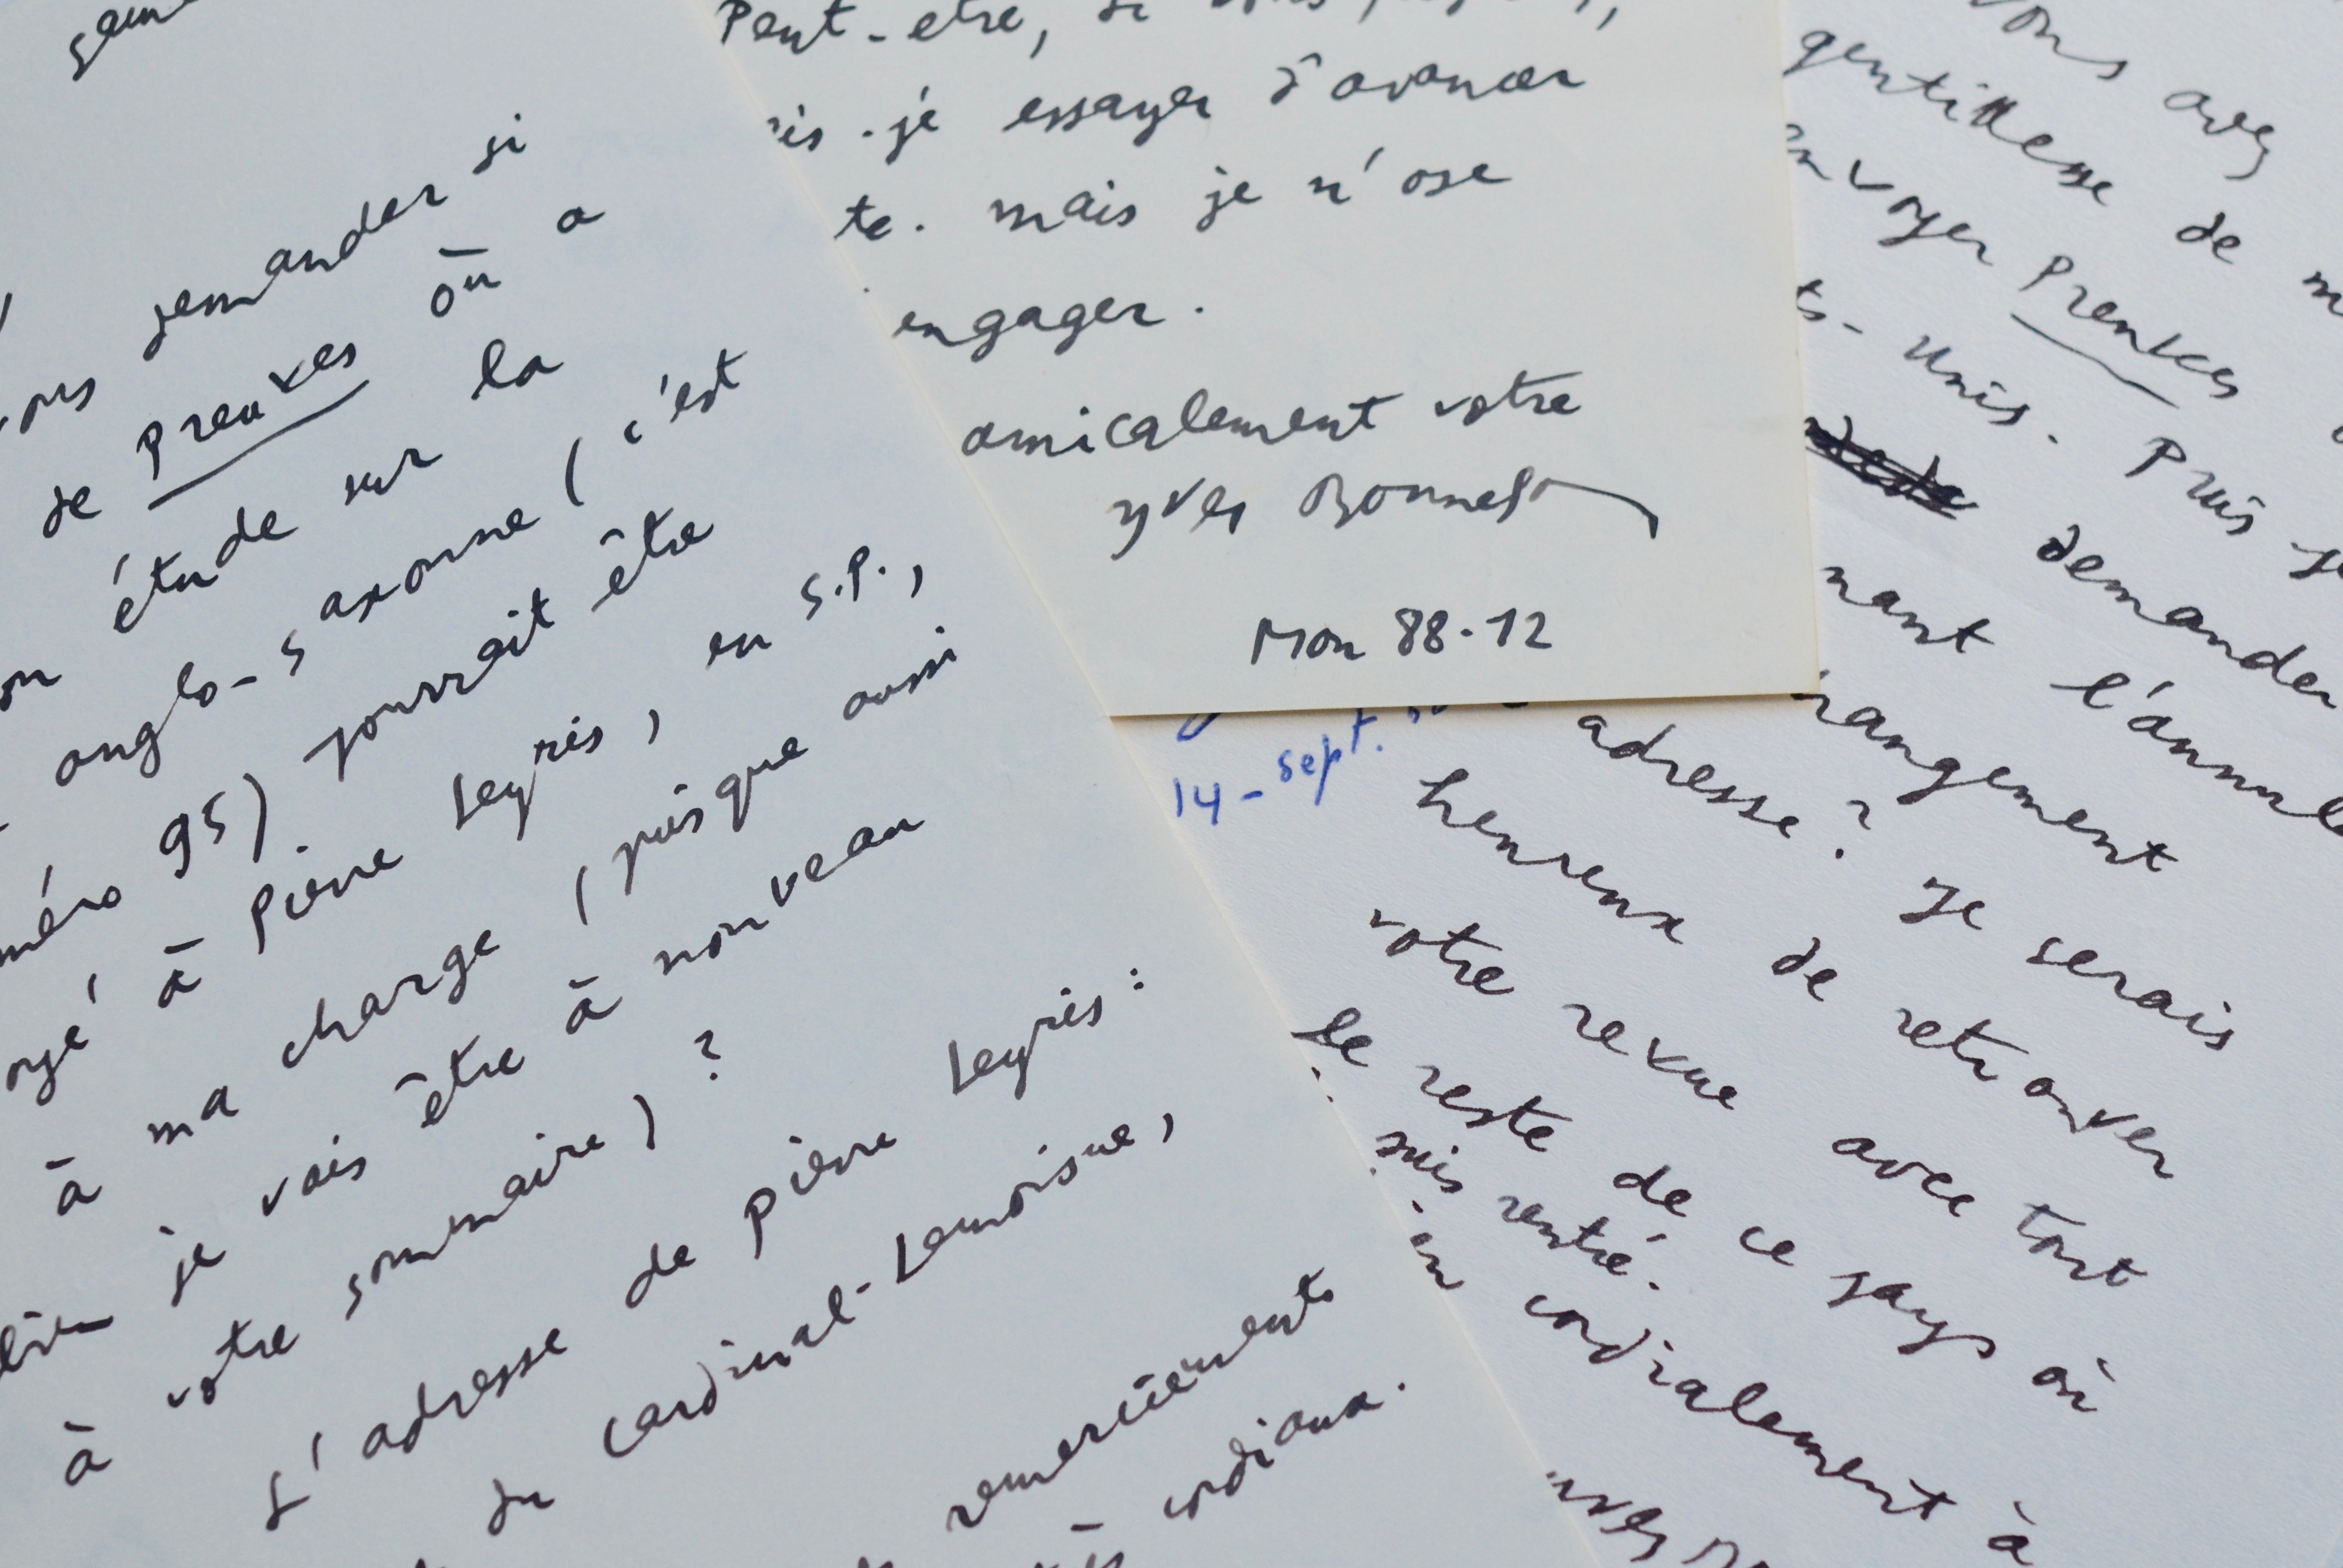 demander si
de Preuves où a
étude sur la
anglo-saxonne (c'est
95) pourrait être
à Pierre Leyris, en S.P.,
à ma charge (puisque aussi
je vais être à nouveau
à votre sommaire) ?
L'adresse de Pierre Leyris :
du Cardinal-Lemoine,
remerciements
cordiaux.
Peut-être, si
-je essayer d'avancer
te. Mais je n'ose
engager.
amicalement votre
Yves Bonnefoy
Mon 88-12
14-sept.
vous avez
gentillesse de
envoyer Preuves
ts-Unis. Puis-je
demander
nant l'annul
rangement
adresse ? Je serais
heureux de retrouver
votre revue avec tout
le reste de ce pays où
suis rentré.
en cordialement à
Yves